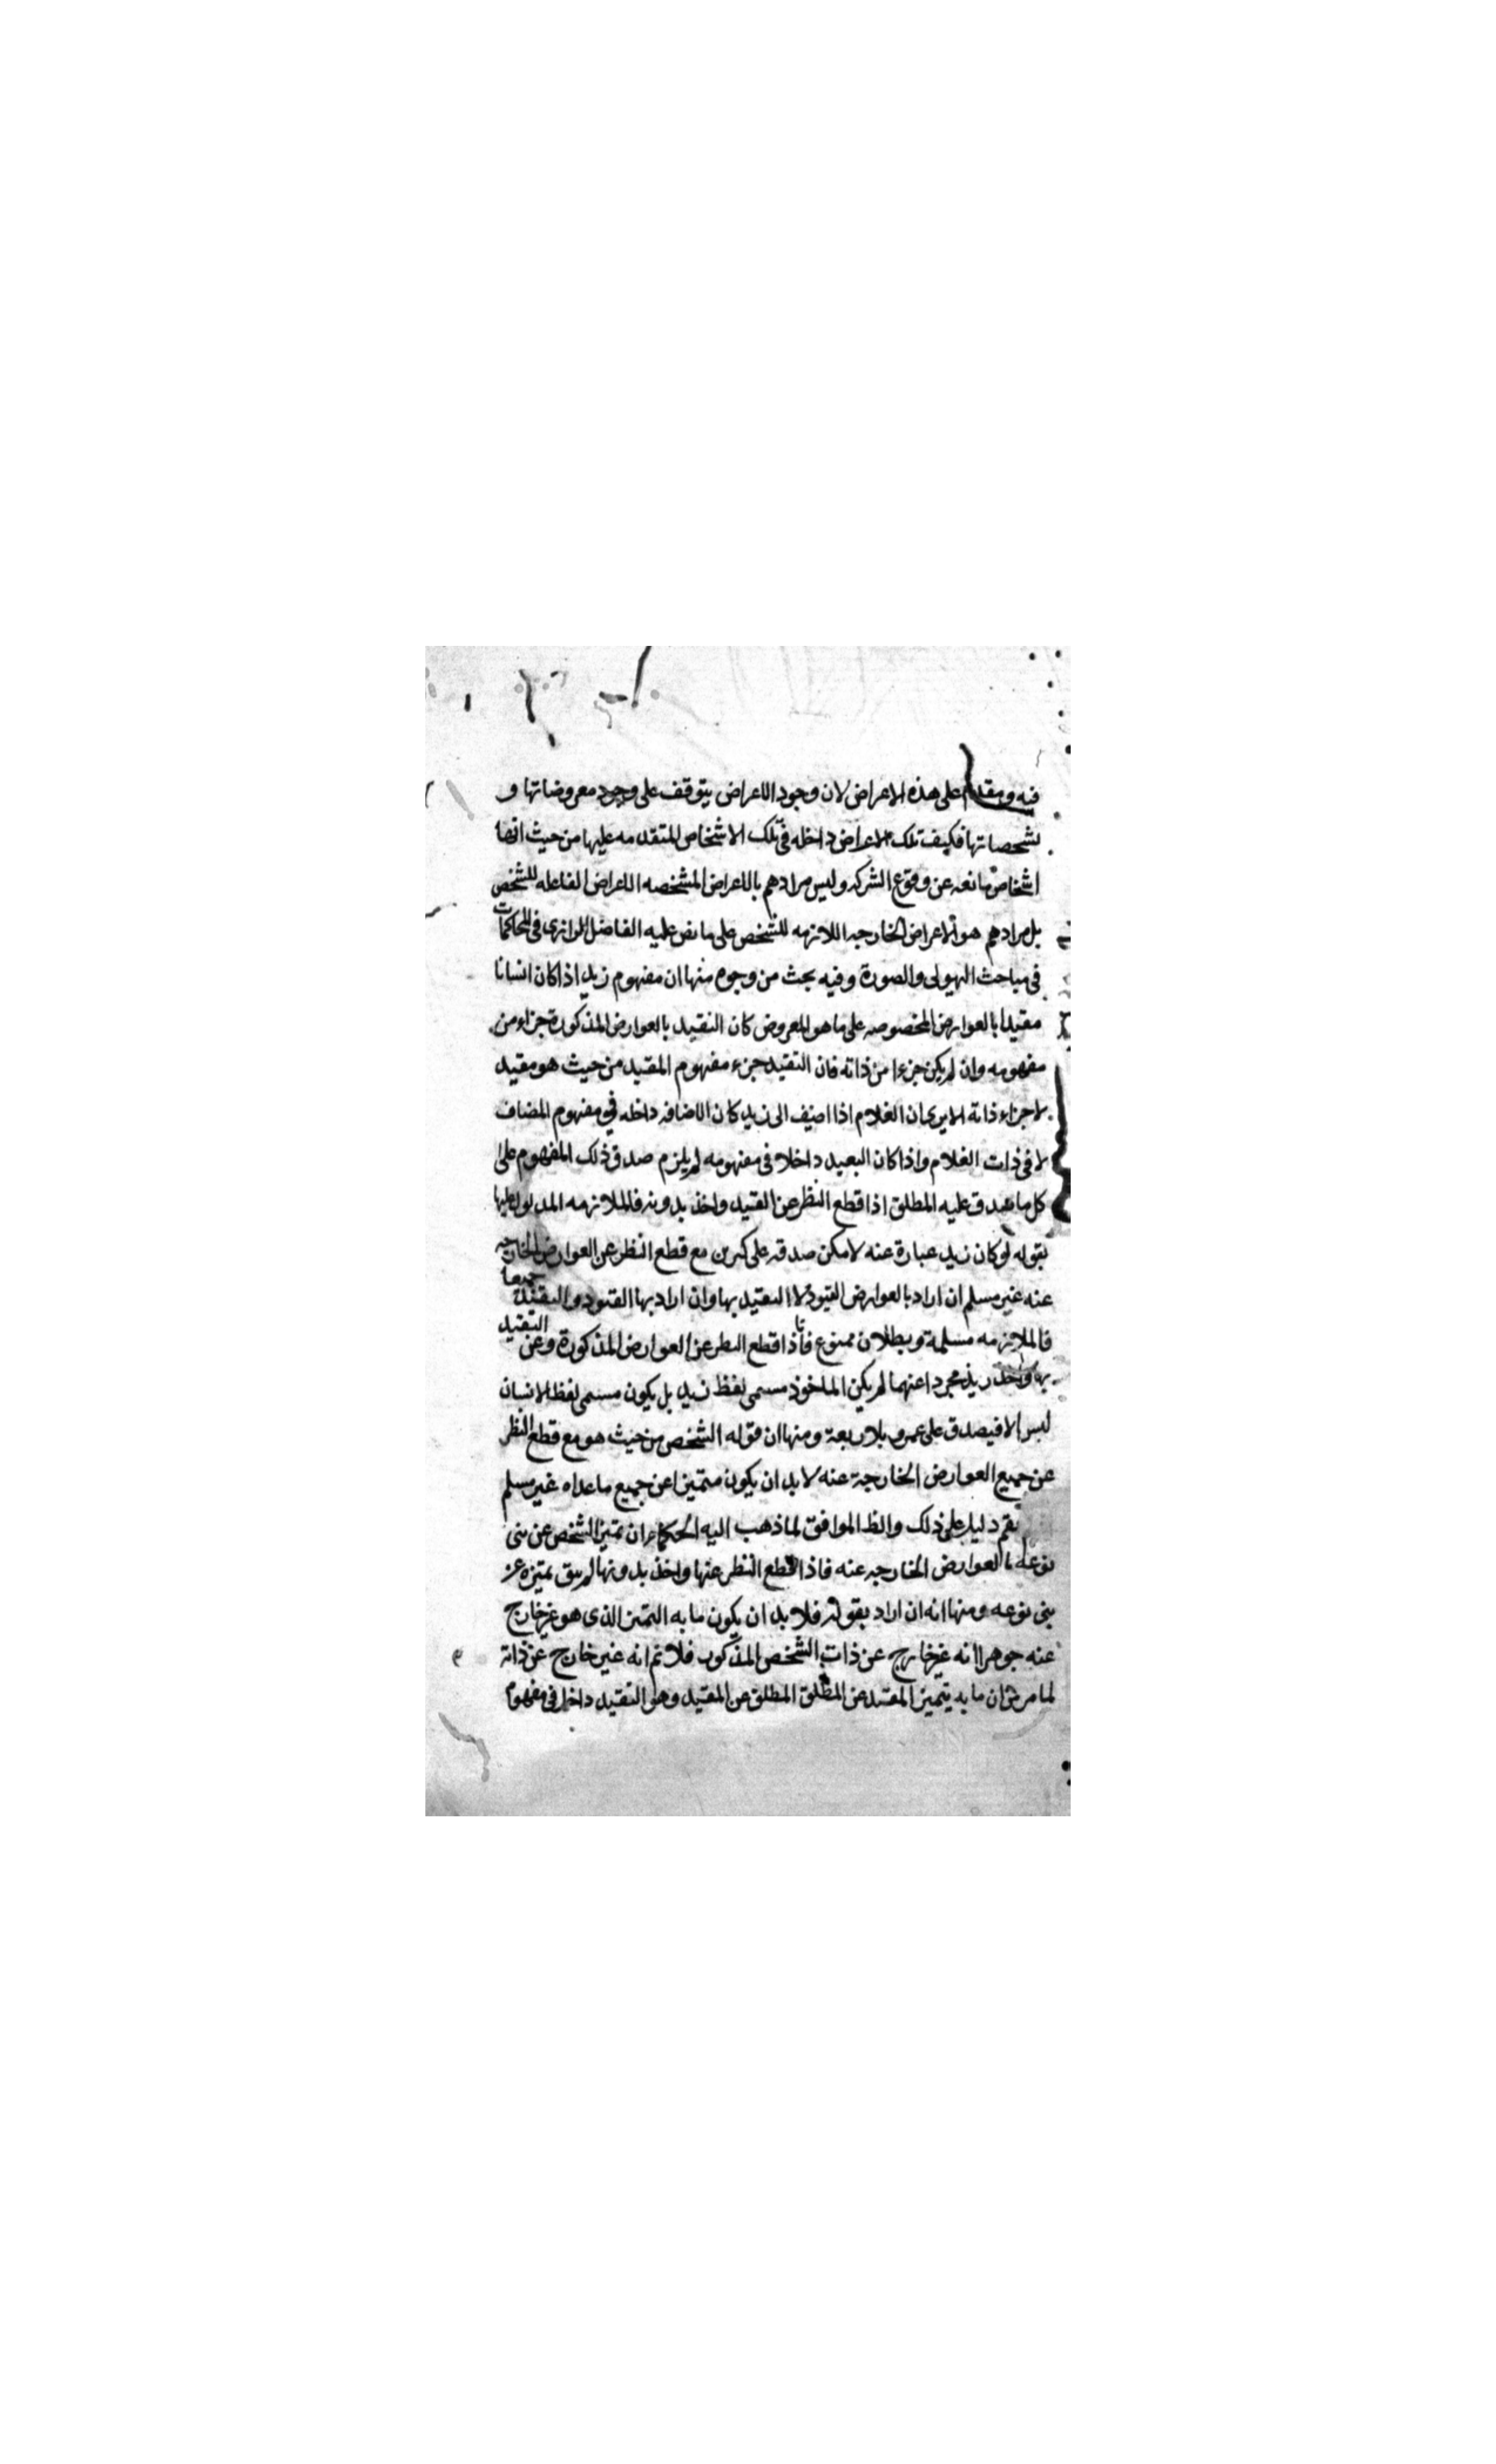 فيه ومقدم على هذه الاعراض لان وجود الاعراض يتوقف على وجود معروضاتها و
تشخصاتها فكيف تلك الاعراض داخله في تلك الاشخاص المتقدمه عليها من حيث انها
اشخاص مانعه عن وقوع الشركه وليس مرادهم بالاعراض المشخصه الاعراض الفاعله للشخص
بل مرادهم هو الاعراض الخارجيه اللازمه للشخص على ما نص عليه الفاضل الرازى في المحاكمات
في مباحث الهيولى والصورة وفيه بحث من وجوه منها ان مفهوم زيد اذا كان انسانا
مقيدا بالعوارض المخصوصه على ما هو المعروض كان التقييد بالعوارض المذكورة جزاء من
مفهومه وان لم يكن جزءا من ذاته فان التقييد جزء مفهوم المقيد من حيث هو مقيد
لا جزاء ذاته الا يرى ان الغلام اذا اضيف الى زيد كان الاضافه داخله في مفهوم المضاف
لا في ذات الغلام واذا كان البعيد داخلا في مفهومه لم يلزم صدق ذلك المفهوم على
كل ما صدق عليه المطلق اذا قطع النظر عن القيد واخذ بدونه فالملازمه المدلول عليها
بقوله لو كان زيد عبارة عنه لامكن صدقه على كثرين مع قطع النظر عن العوارض الخارجيه
عنه غير مسلم ان اراد بالعوارض القيود لا التقييد بها وان اراد بها القيود والتقييد جميعا
فالملازمه مسلمة وبطلان ممنوع فاذا قطع النظر عن العوارض المذكورة وعن التقييد
بها واخذ زيد مجردا عنهما لم يكن الماخوذ مسمى لفظ زيد بل يكون مسمى لفظ الانسان
ليس الا فيصدق على عمرو بلا ريعة ومنها ان قوله الشخص من حيث هو مع قطع النظر
عن جميع العوارض الخارجة عنه لا بد ان يكون متميزا عن جميع ما عداه غير مسلم
يقم دليل على ذلك والظ الموافق لما ذهب اليه الحكماء ان تميز الشخص عن بنى
نوعه بالعوارض الخارجيه عنه فاذا قطع النظر عنها واخذ بدونها لم يبق تميزه عن
بنى نوعه ومنها انه ان اراد بقوله فلا بد ان يكون ما به التميز الذى هو غير خارج
عنه جوهرا انه غير خارج عن ذات الشخص المذكور فلا نم انه غير خارج عن ذاته
لما مر من ان ما به يتميز المقيد عن المطلق المطلق عن المقيد وهو التقييد داخل في مفهوم